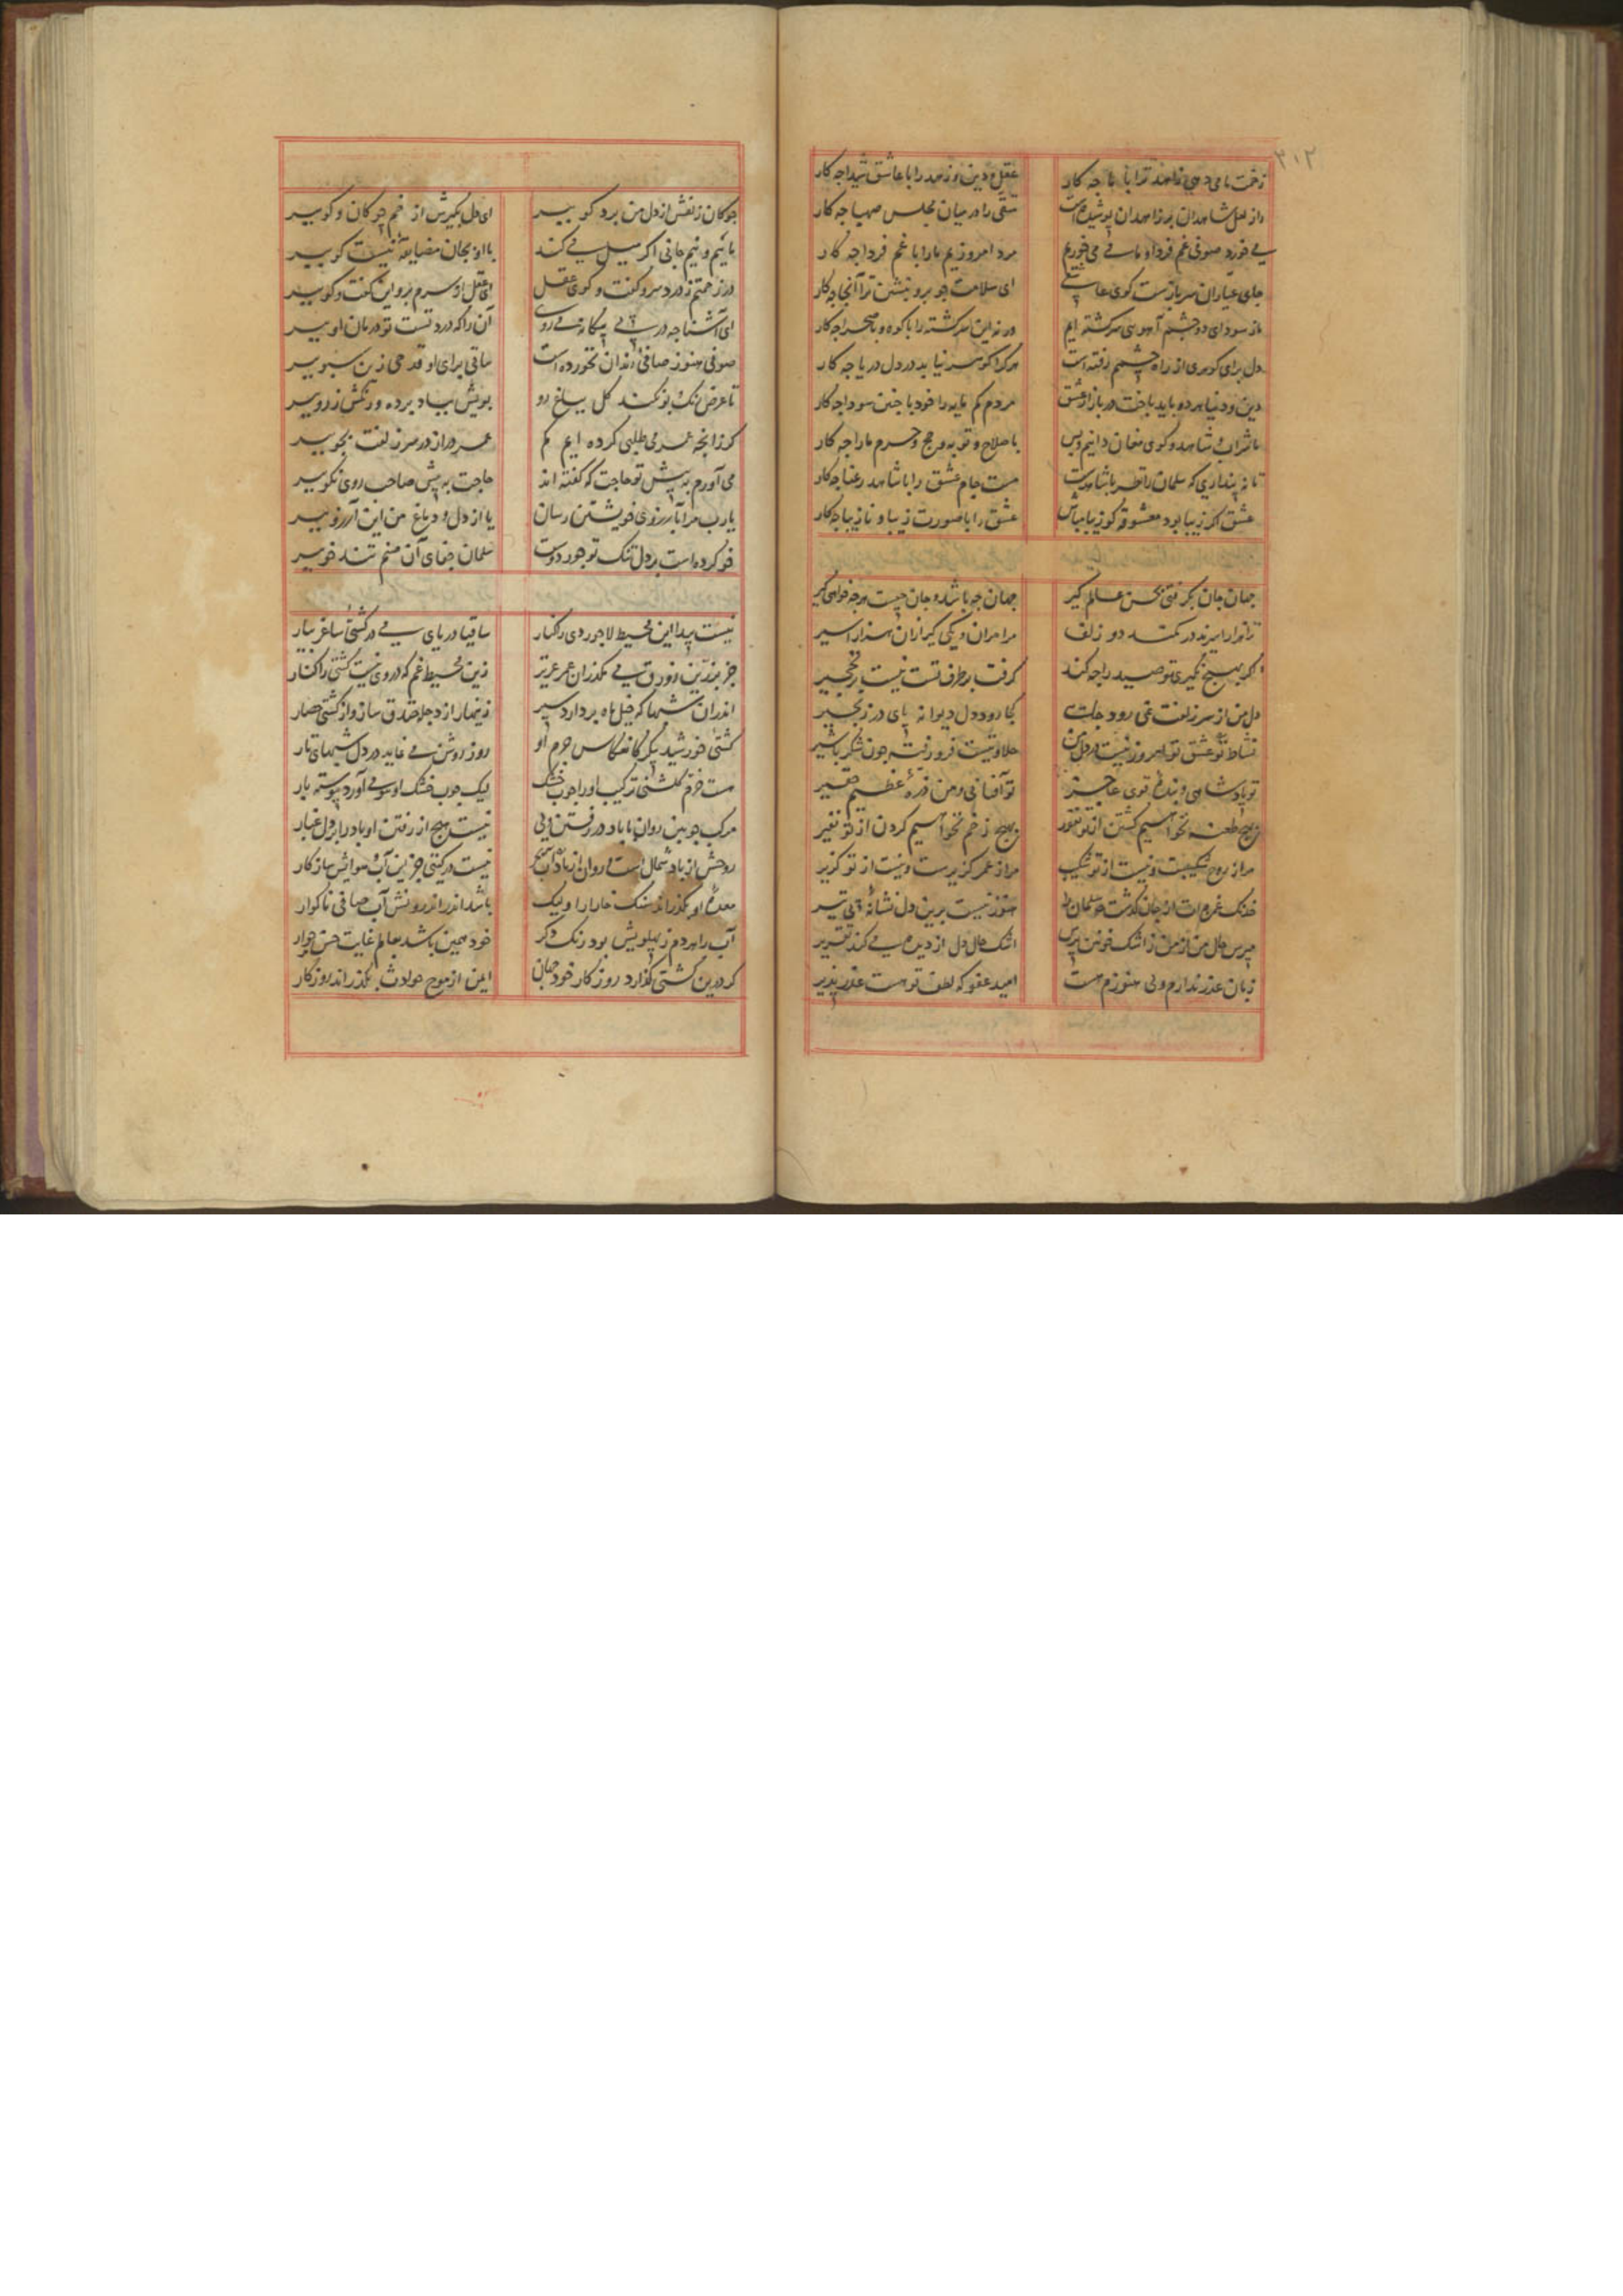 ۳۱۲
زحمت ما می دهی زاهد ترا با ما چه کار عقل و دین و زهد را با عاشق شیدا چه کار
راز لعل شاهدان بر زاهدان پوشیده است متقی را در میان مجلس صهبا چه کار
می خورد صوفی غم فردا و ما می می خوریم مرد امروزیم ما را با غم فردا چه کار
جای عیاران سرباز ست کوی عاشقی ای سلامت جو برو بنشین ترا آنجا چه کار
ما ز سودای دو چشم آهوی سرکشته ایم ورنه این سرکشته را با کوه و با صحرا چه کار
دل برای کوهری از راه چشمم رفته است هر کرا کوهر نیاید در دل دریا چه کار
دین و دنیا هر دو باید باخت در بازار عشق مردم کم مایه را خود با چنین سودا چه کار
ما شراب و شاهد و کوی مغان دانیم و بس با صلاح و توبه و حج و حرم ما را چه کار
تا نپنداری که سلمان را نظر با شاهدست مست جام عشق را با شاهد رعنا چه کار
عشق اکر زیبا بود معشوق کو زیبا مباش عشق را با صورت زیبا و نازیبا چه کار
جهان جان بکرفتی بحسن عالم کیر جهان چه باشد و جان چیست هر چه خواهی کیر
ترا هزار اسیرند در کمند دو زلف مرا مران و یکی کیر از آن هزار اسیر
اکر بهیچ نکیری تو صید را چه کند کرفت بر طرف تست نیست بر نخجیر
دل من از سر زلفت نمی رود جایی کجا رود دل دیوانه پای در زنجیر
نشاط عشق تو امروز نیست در دل من حلاوتیست فرو رفته چون شکر با شیر
تو پادشاهی و بنده قوی عاجز تو آفتابی و من ذره عظیم حقیر
بهیچ طعنه نخواهیم کشتن از تو نفور بهیچ زخم نخواهیم کردن از تو نفیر
مرا ز روح شکیبست و نیست از تو شکیب مرا ز عمر کزیرست و نیست از تو کزیر
خدنک غمزه ات از جان کذشت سلمان را هنوز نیست برین دل نشانه پی تیر
مپرس حال من از من ز اشک خونین پرس اشک حال دل از دیده می کند تقریر
زبان عذر ندارم ولی هنوزم هست امید عفو که لطف تو هست عذر پذیر
چوکان زلفش از دل من برد کو ببر ای دل بکیرش از خم چوکان و کو ببر
ماییم و نیم جانی اکر میل می کند با او بجان مضایقه نیست کو ببر
در زحمتم ز درد سر و کفت و کوی عقل ای عقل از سرم برو این کفت و کو ببر
ای آشنا چه در پی بیکانه می روی آن را که درد تست تو درمان او ببر
صوفی هنوز صافی رندان نخورده است ساقی برای او قدحی زین سبو ببر
تا عرض رنک و بو نکند کل بباغ رو بویش بباد برده و رنکش ز رو ببر
کر زانچه عمر می طلبی کرده ایم کم عمر دراز در سر زلفت بجو ببر
می آورم به پیش تو حاجت که کفته اند حاجت به پیش صاحب روی نکو ببر
یارب مرا بآرزوی خویشتن رسان یا از دل و دماغ من این آرزو ببر
خو کرده است بر دل تنک تو جور دوست سلمان جفای آن صنم تند خو ببر
نیست پیدا این محیط لاجوردی را کنار ساقیا دریای می در کشتی ساغر بیار
جز بزرین زورق می نکذران عمر عزیز زین محیط غم که در وی نیست کشتی را کنار
اندران شبها که خیل ماه بردارد سپر زینهار از دجله خندق ساز و از کشتی حصار
کشتی خورشید پیکر کانعکاس جرم او روز روشن می نماید در دل شبهای تار
هست خرم کلشنی ترکیب او را چوب خشک لیک چوب خشک او می آورد پیوسته بار
مرکب چوبین روان با باد در رفتن ولی نیست هیچ از رفتن او باد را بر دل غبار
روحش از باد شمال است و روان از باد آب نیست در کیتی جز این آب و هوایش سازکار
معده او بکذراند سنک خارا را ولیک باشد اندر اندرونش آب صافی ناکوار
آب را هر دم ز پهلویش بود رنک دکر خود همین باشد بعالم غایت حسن جوار
کر درین کشتی کذارد روزکار خود جهان ایمن از موج حوادث بکذراند روزکار